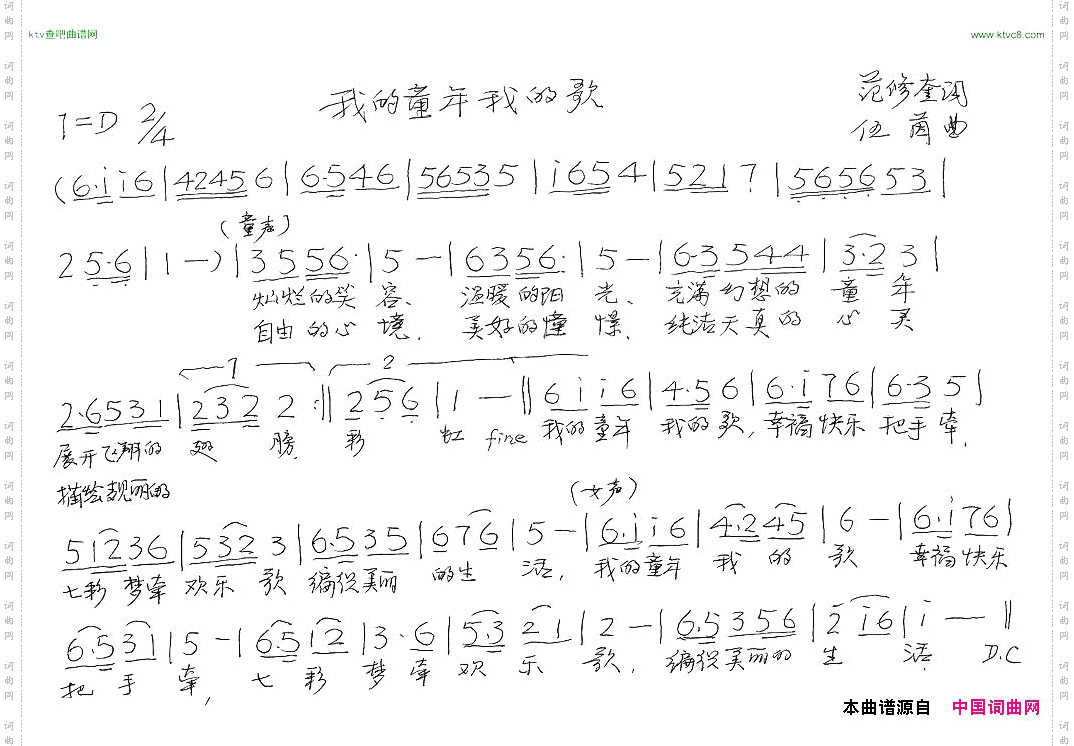 ktv查吧曲谱网
www.ktvc8.com
我的童年我的歌
范修奎词
1=D 2/4
伍茵曲
(6·i i6|42456|6·546|56535|i654|521 7|565653|
(童声)
25·6|1—)|3556·|5—|6356·|5—|6·3544|3·23|
灿烂的笑容、温暖的阳光、充满幻想的童年
自由的心境、美好的憧憬、纯洁天真的心灵
1 2
2·6531|2322:‖256|1—‖6ii6|4·56|6·i76|6·35|
展开飞翔的翅膀 彩虹 fine 我的童年 我的歌,幸福快乐 把手牵,
描绘靓丽的
(女声)
51236|5323|6·535|676|5—|6·ii6|4·245|6—|6·i76|
七彩梦牵欢乐歌 编织美丽的生活,我的童年我的歌 幸福快乐
6·531|5—|6·512|3·6|5·321|2—|6·5356|2i6|i—‖
把手牵,七彩梦牵欢乐歌,编织美丽的生活 D.C
本曲谱源自 中国词曲网
词曲网